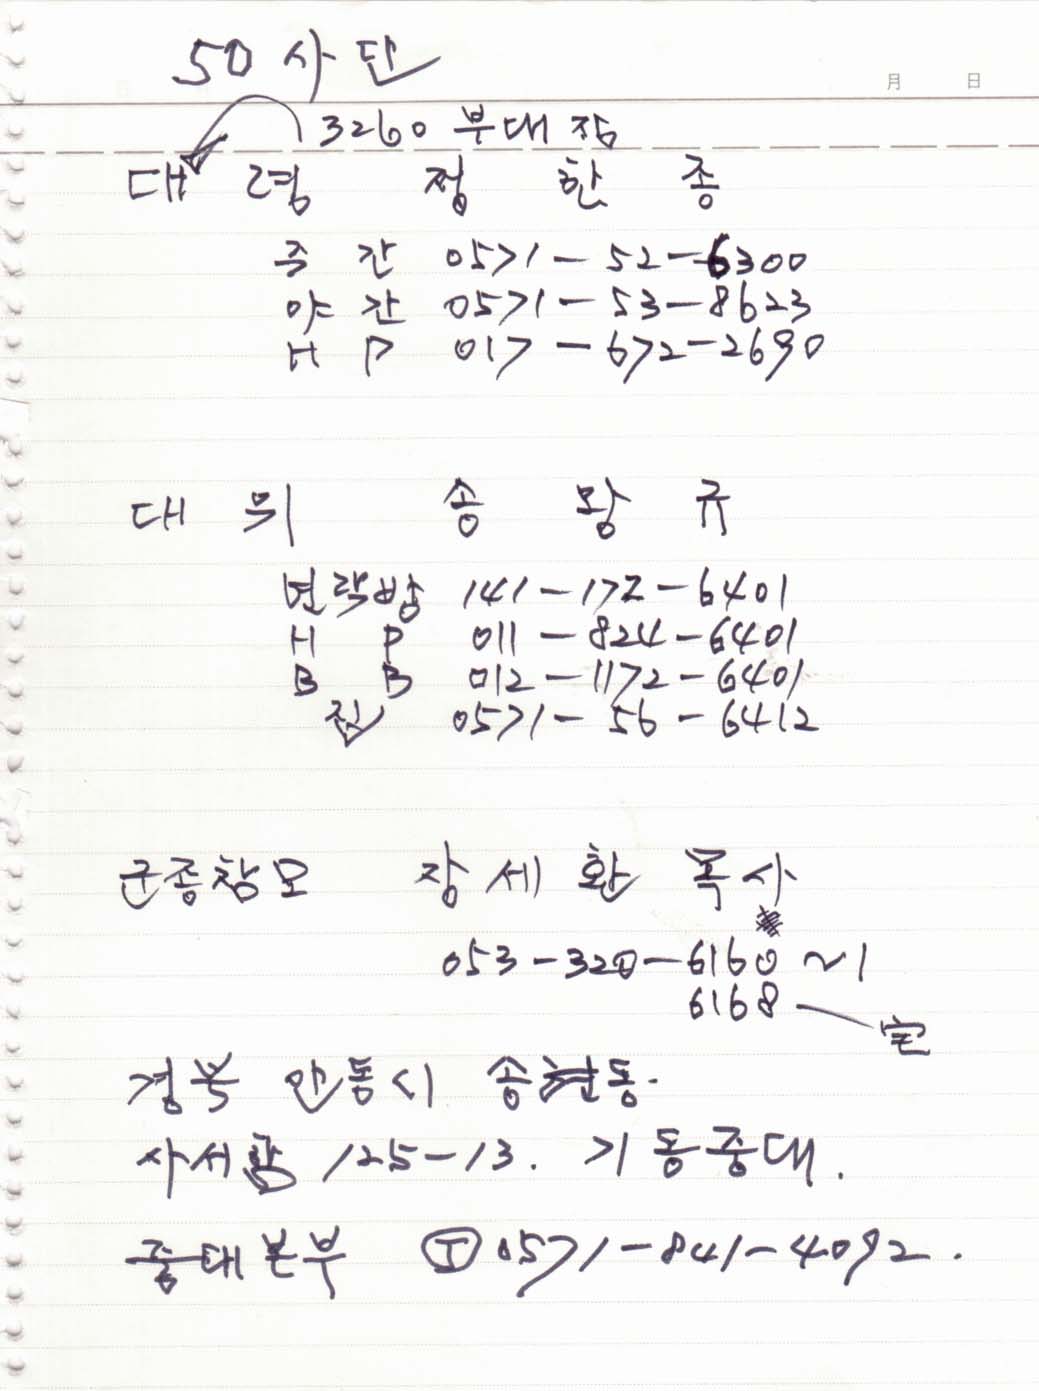 50사단
月 日
3260 부대장
대령 정한종
주간 0571-52-6300
야간 0571-53-8623
HP 017-672-2690
대위 송왕규
연락방 141-172-6401
HP 011-824-6401
BB 012-1172-6401
집 0571-56-6412
군종참모 장세환 목사
053-320-6160~1
6168 - 宅
경북 안동시 송현동.
사서함 125-13. 기동중대.
중대본부 Ⓣ 0571-841-4092.